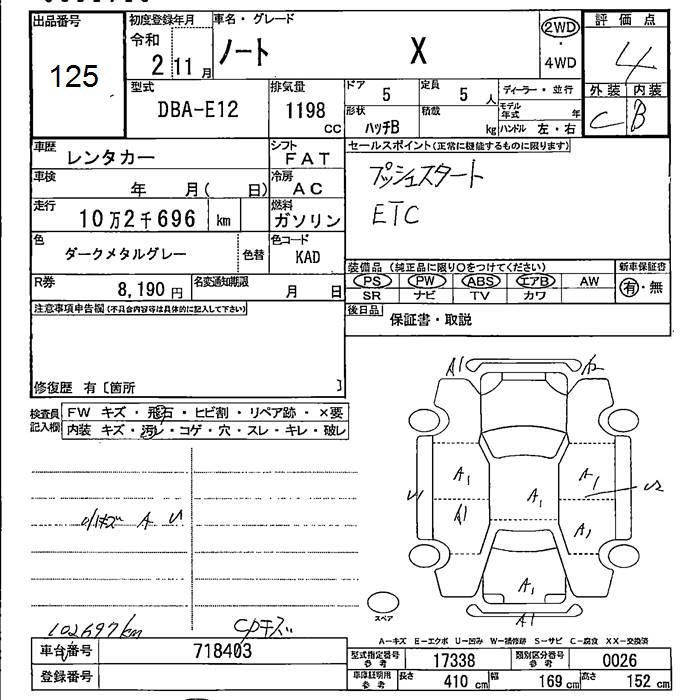 出品番号
125
初度登録年月
令和
2 11 月
車名・グレード
ノート X
2WD
・
4WD
評価点
4
外装 内装
C B
型式
DBA-E12
排気量
1198 CC
ドア
5
定員
5 人
ディーラー・並行
形状
ハッチB
積載
kg
モデル年式 年
ハンドル 左・右
車歴
レンタカー
シフト
FAT
車検
年 月( 日)
冷房
AC
走行
10万2千696 km
燃料
ガソリン
色
ダークメタルグレー
色替
色コード
KAD
R券
8,190 円
名変通知期限
月 日
セールスポイント(正常に機能するものに限ります)
プッシュスタート
ETC
装備品 (純正品に限り〇をつけてください)
新車保証書
PS PW ABS エアB AW
SR ナビ TV カワ
有・無
後日品
保証書・取説
注意事項申告欄(不具合内容等は具体的に記入して下さい)
修復歴 有〔箇所 〕
検査員記入欄
FW キズ・飛石・ヒビ割・リペア跡・×要
内装 キズ・汚レ・コゲ・穴・スレ・キレ・破レ
A U
102697km
A1
A1
A1
A1
A1
A1
A1
A1
スペア
A-キズ E-エクボ U-凹み W-補修跡 S-サビ C-腐食 XX-交換済
車台番号
718403
登録番号
型式指定番号 参考
17338
類別区分番号 参考
0026
車庫証明用 参考
長さ 410 cm
幅 169 cm
高さ 152 cm